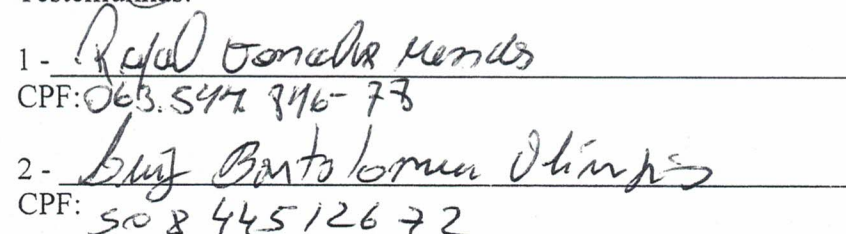 Testemunhas:
1 - Rafael Gonçalves Mendes
CPF: 063.547 846-78
2 - Luiz Bartolomeu Olímpio
CPF: 508 445126 72